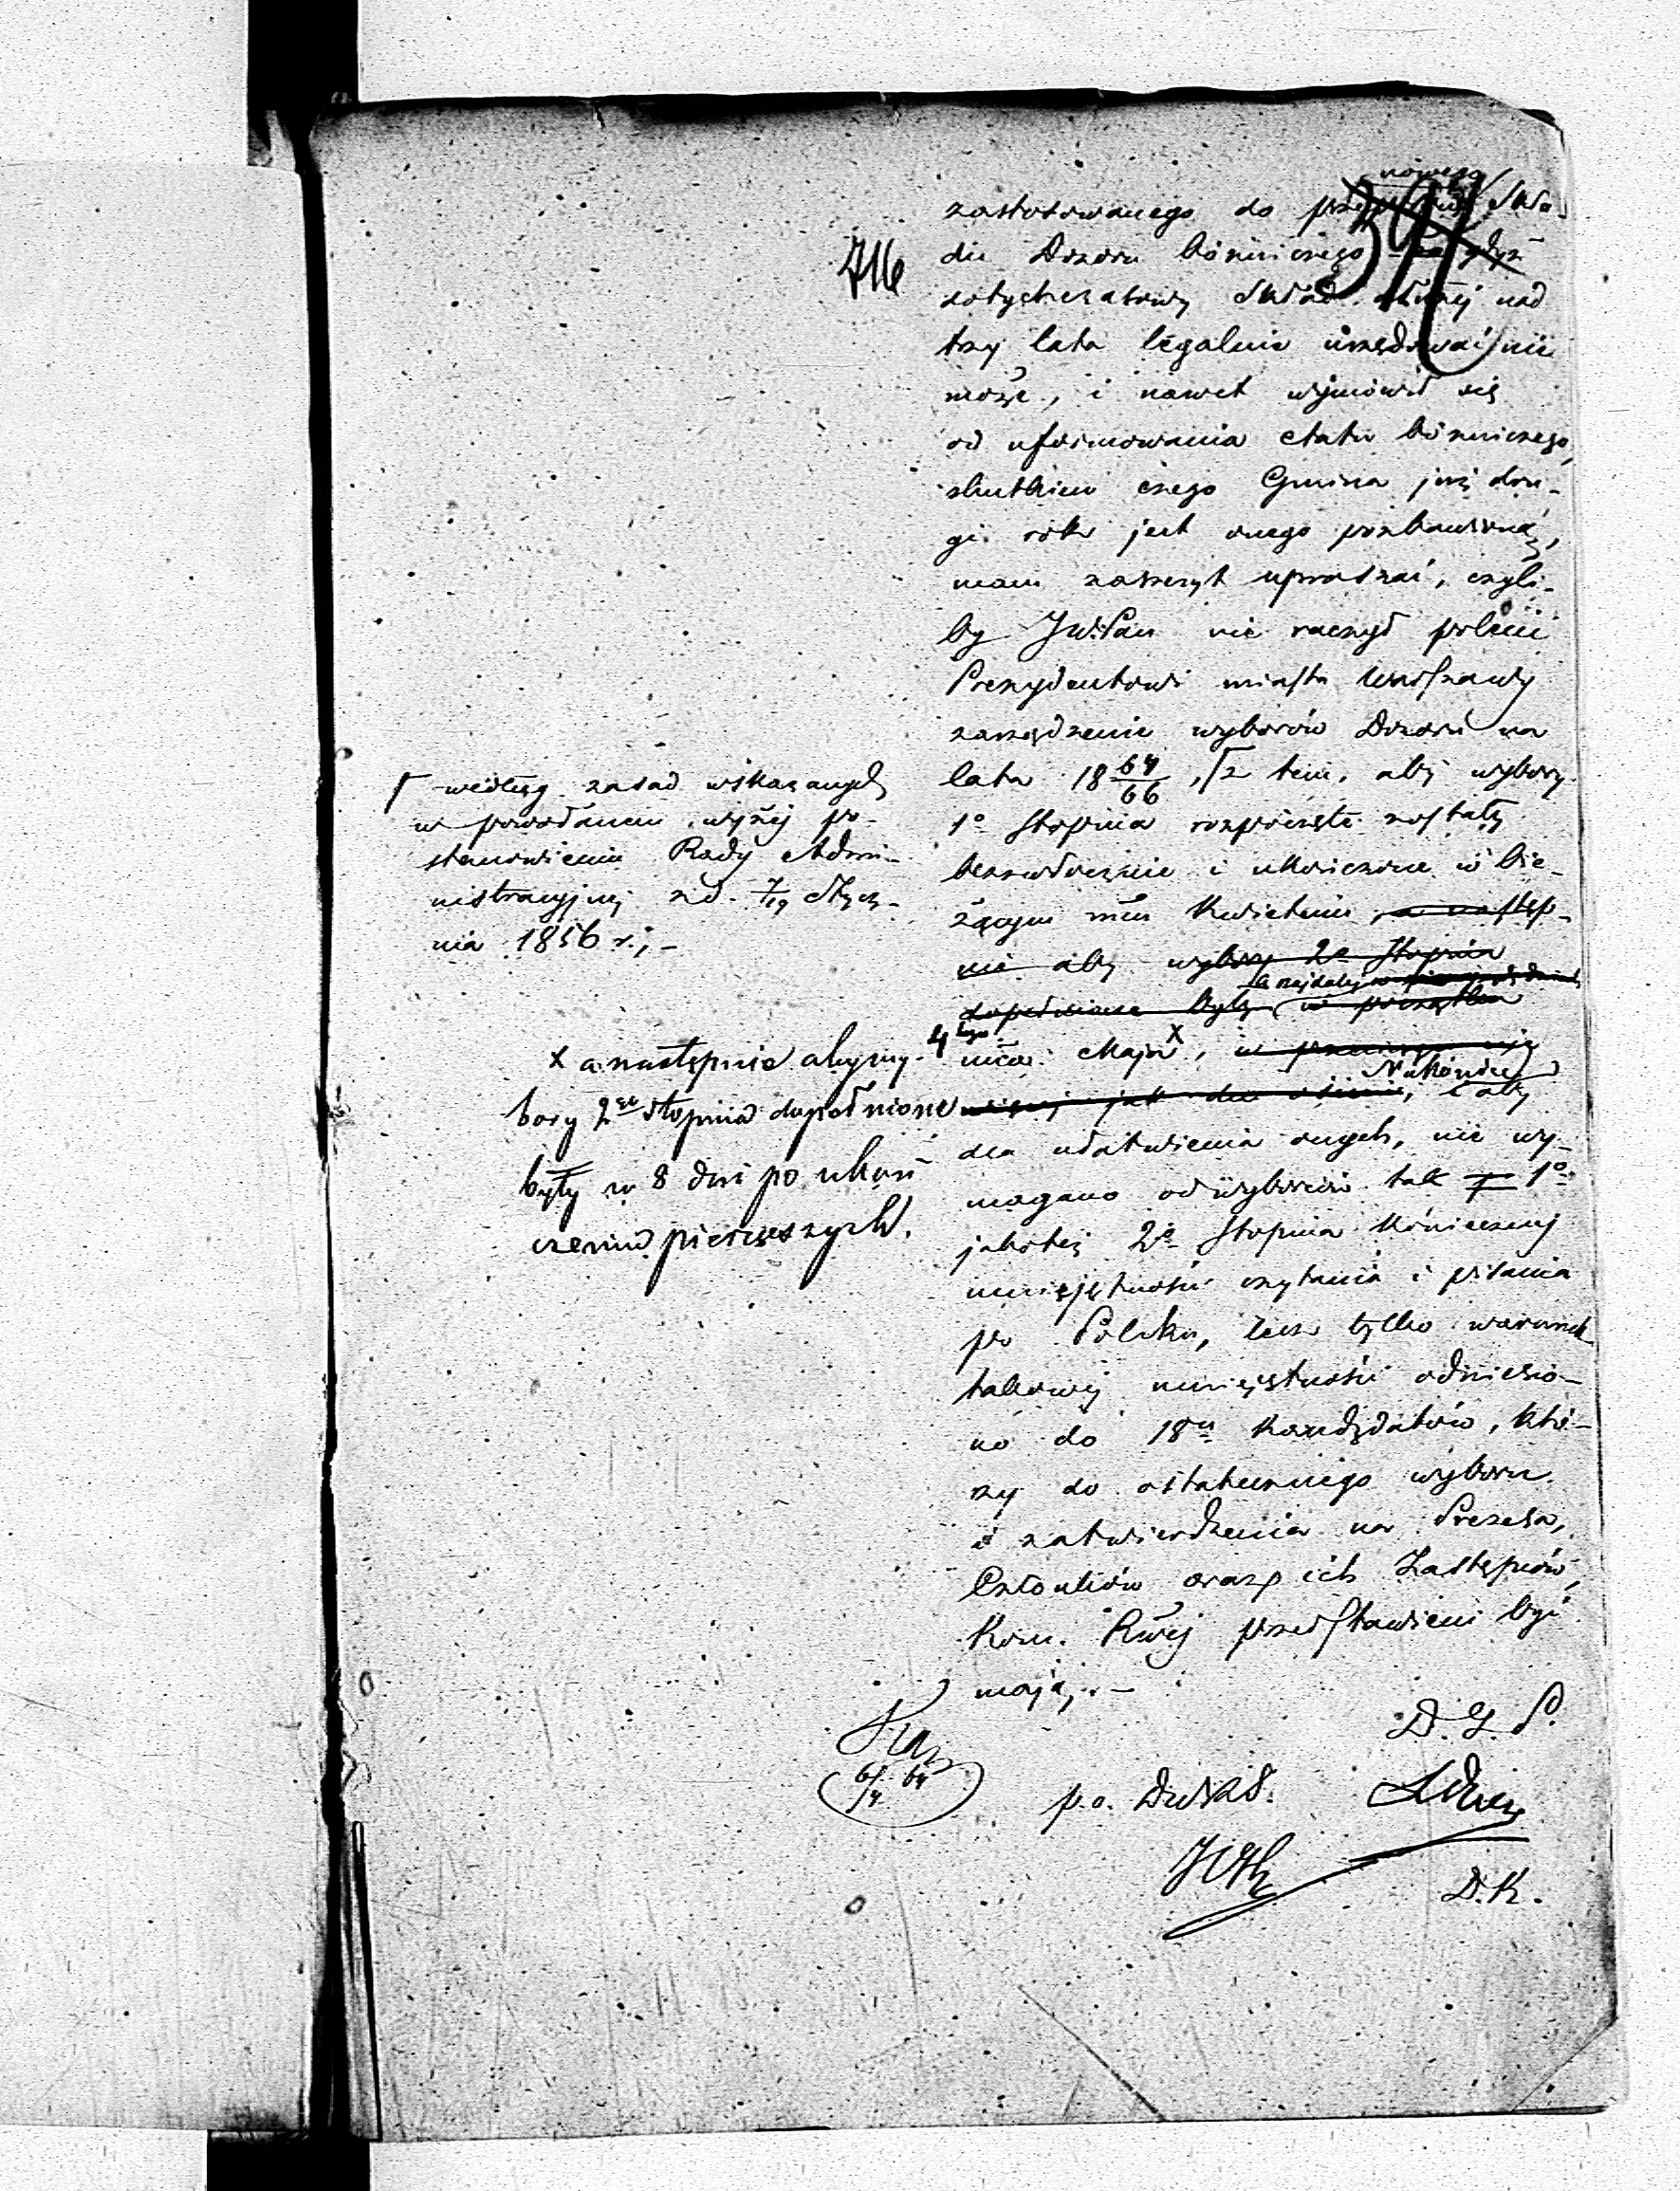 nowego
zastosowanego do Skła-
du Dozoru bóżniczego
dotychczasowy Skład dłużej nad
trzy lata legalnie urzędować nie
może, i nawet wymówił się
od uformowania etatu bóżniczego,
skutkiem czego Gmina już dru-
gi rok jest onego pozbawioną,
mam zaszczyt upraszać, czyli-
by JW. Pan nie raczył polecić
Prezydentowi miasta Warszawy
zarządzenie wyborów Dozoru na
lata 18 64/66, Γ z tem, aby wybory
1º Stopnia rozpoczęte zostały
bezzwłocznie i ukończone w bie-
żącym mcu Kwietniu, a następ-
nie aby wybory 2º Stopnia
a najdalej w
dopełnione były w początku
mca Maja X, w
ukończ
więcej jak dni ośmiu, i aby
dla ułatwienia onych, nie wy-
magano od wyborców tak 1º
jakoteż 2º Stopnia koniecznej
umiejętności czytania i pisania
po Polsku, lecz tylko warunek
takowej umiejętności odniesio-
no do 18u Kandydatów, któ-
rzy do ostatecznego wyboru
i zatwierdzenia na Prezesa,
Członków oraz ich Zastępców,
Kom. Rwej przedstawieni być
mają.-
716
Γ według zasad wskazanych
w powołanem wyżej po-
stanowieniu Rady Admi-
nistracyjnej z d. 7/19 Stycz-
nia 1856 r.; -
X a następnie aby wy-
bory 2go Stopnia dopełnione
były w 8 dni po ukoń
czeniu pierwszych.
D. G. P.
6/4 64
p.o. DWS.
D. K.